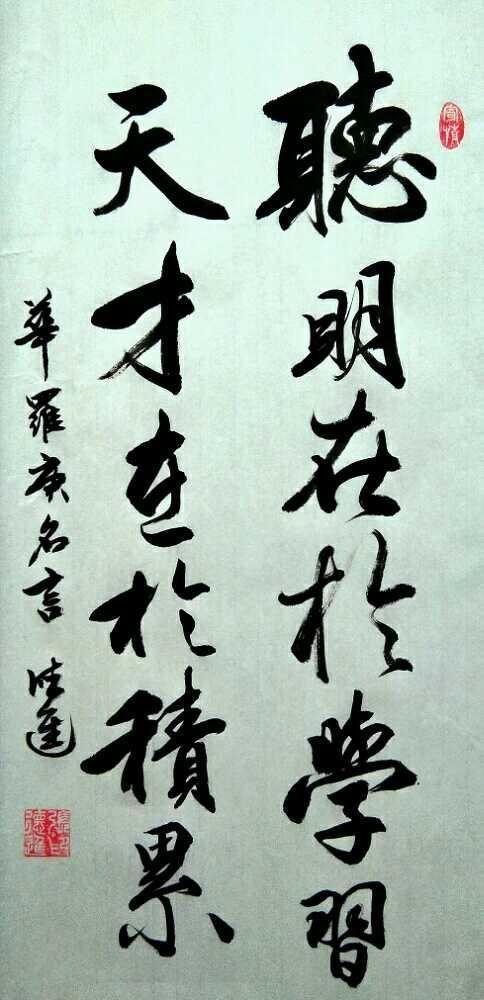 聽明在於學習
天才在於積累
華羅庚名言